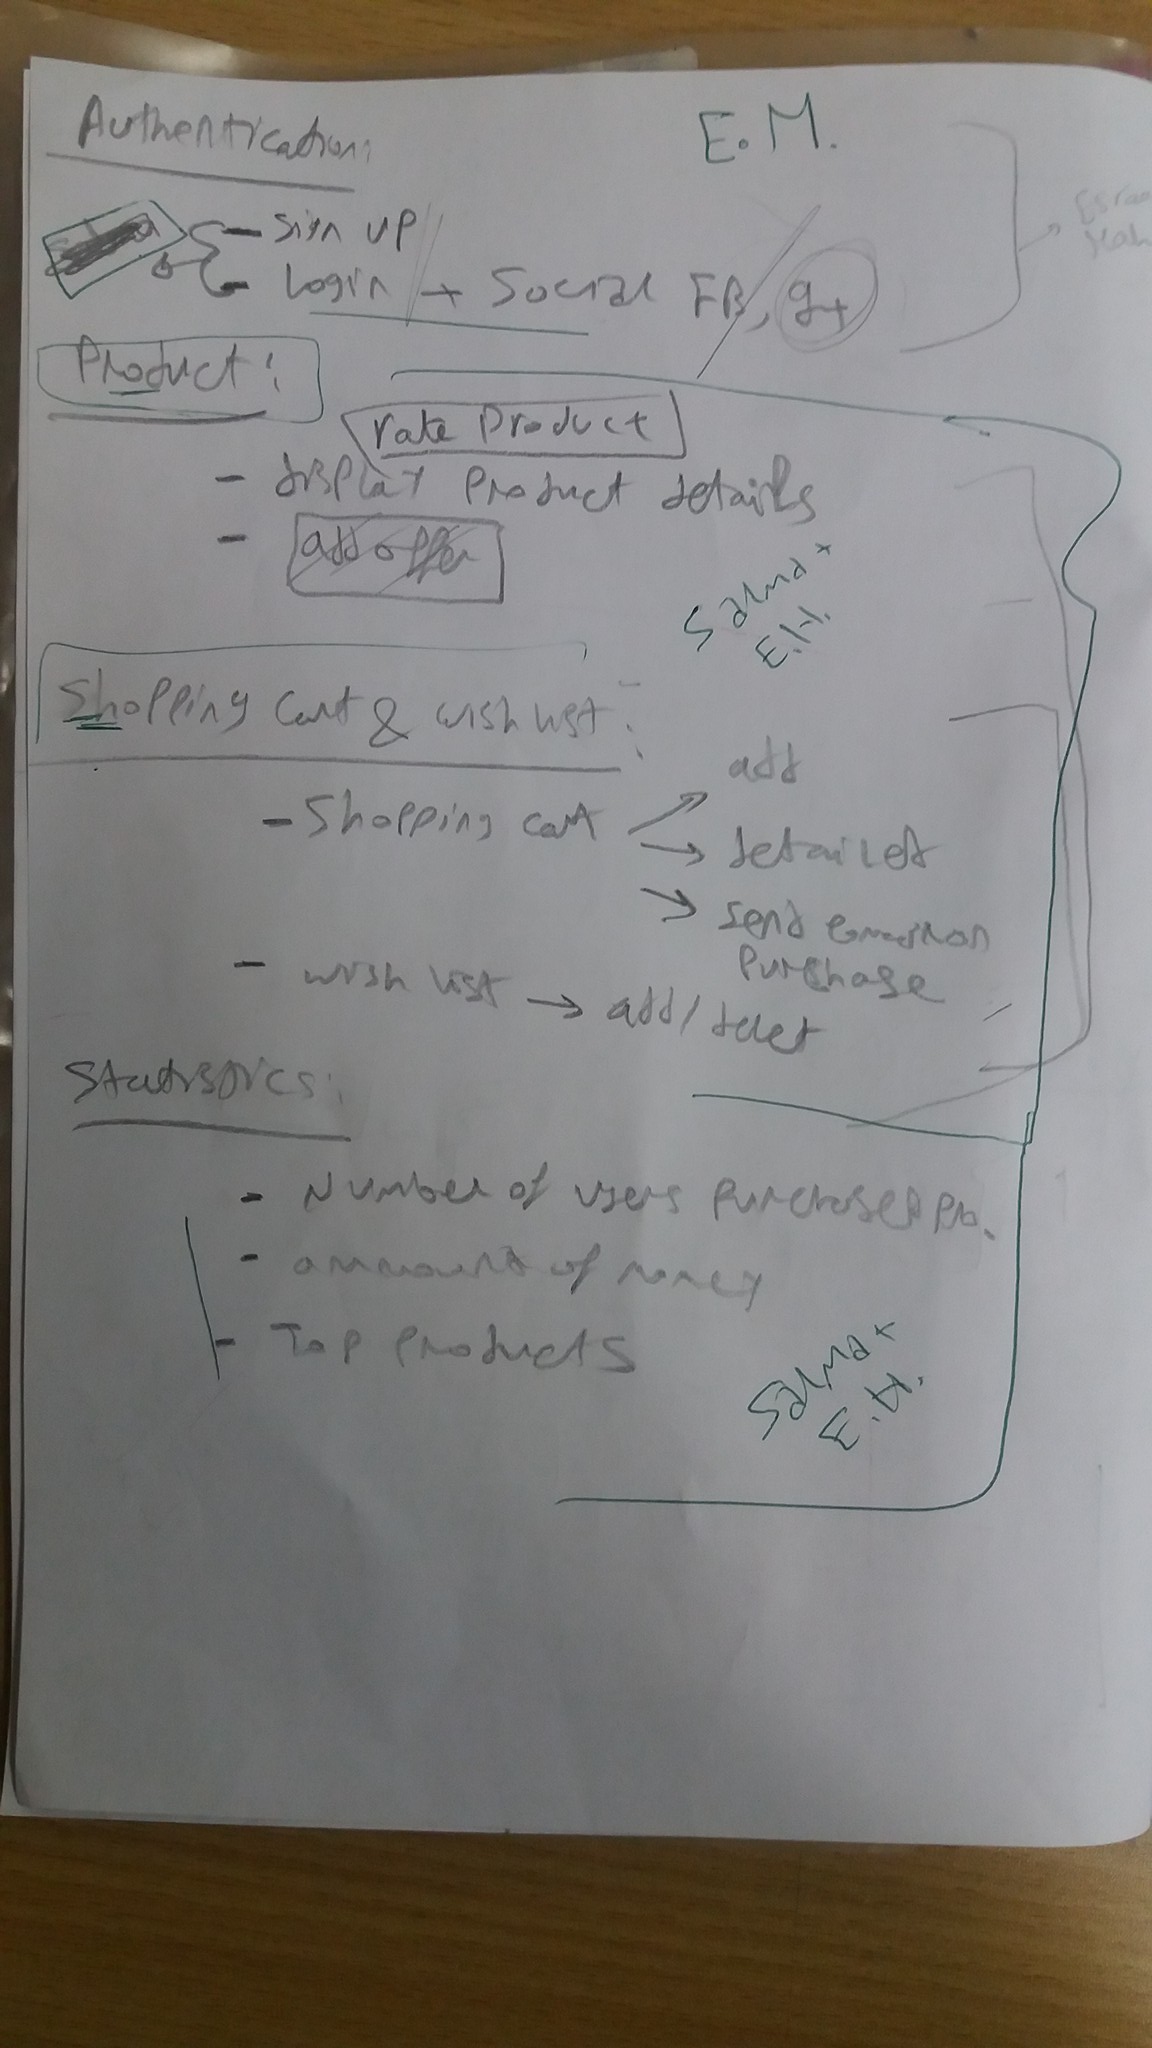 Authentication:
E.M.
- Sign up
- Login + Social FB, g+
Product:
rate Product
- display product details
- add offer
Salma +
E.H.
Shopping cart & wish list:
- Shopping cart
add
send
purchase
- wish list → add/delet
Statistics:
- Number of users purchased pro.
- ammount of money
- Top products
Salma +
E.H.